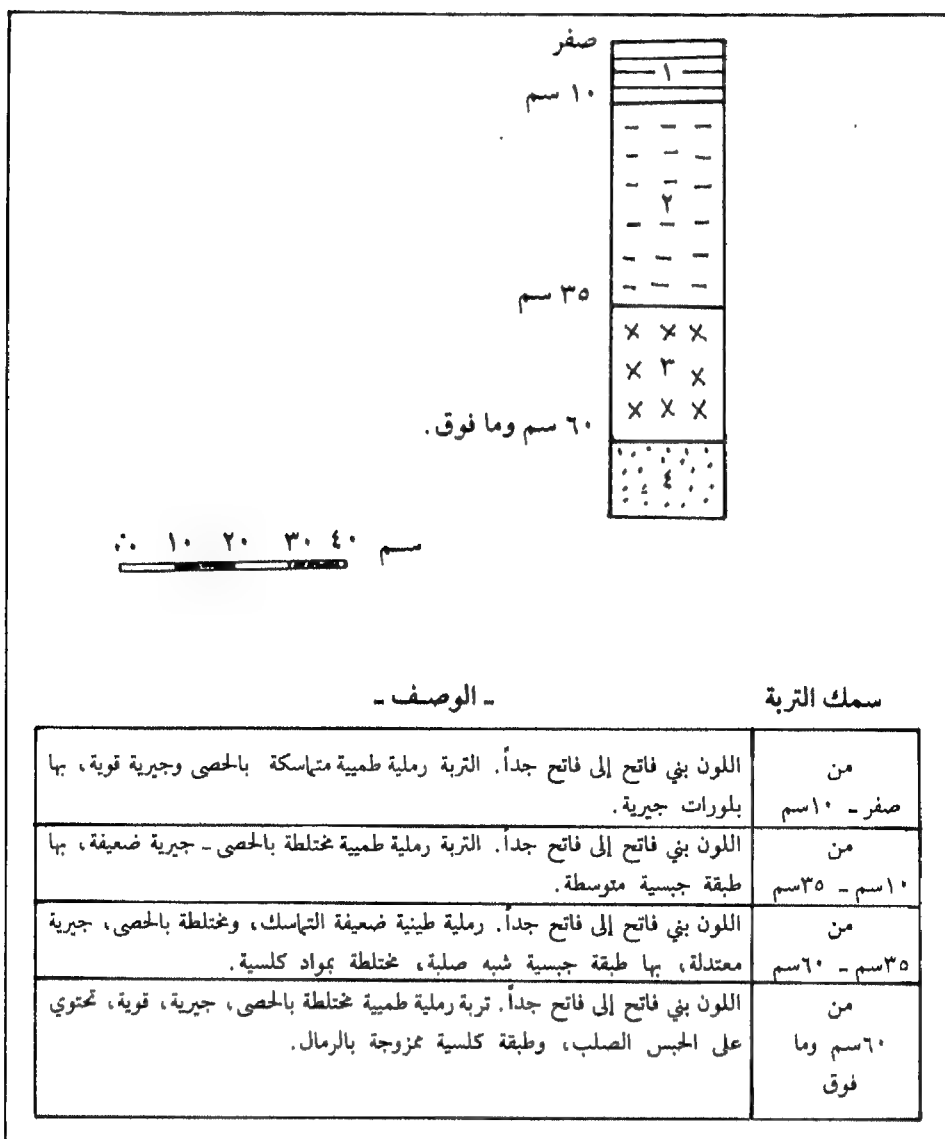 صفر
١
١٠ سم
٢
٣٥ سم
٣
٦٠ سم وما فوق.
٤
٠ ١٠ ٢٠ ٣٠ ٤٠ سم
سمك التربة - الوصف -
من
صفر - ١٠سم
اللون بني فاتح إلى فاتح جداً. التربة رملية طميية متماسكة بالحصى وجيرية قوية، بها
بلورات جيرية.
من
١٠سم - ٣٥سم
اللون بني فاتح إلى فاتح جداً. التربة رملية طميية مختلطة بالحصى - جيرية ضعيفة، بها
طبقة جبسية متوسطة.
من
٣٥سم - ٦٠سم
اللون بني فاتح إلى فاتح جداً. رملية طينية ضعيفة التماسك، ومختلطة بالحصى، جيرية
معتدلة، بها طبقة جبسية شبه صلبة، مختلطة بمواد كلسية.
من
٦٠سم وما
فوق
اللون بني فاتح إلى فاتح جداً. تربة رملية طميية مختلطة بالحصى، جيرية، قوية، تحتوي
على الحبس الصلب، وطبقة كلسية ممزوجة بالرمال.